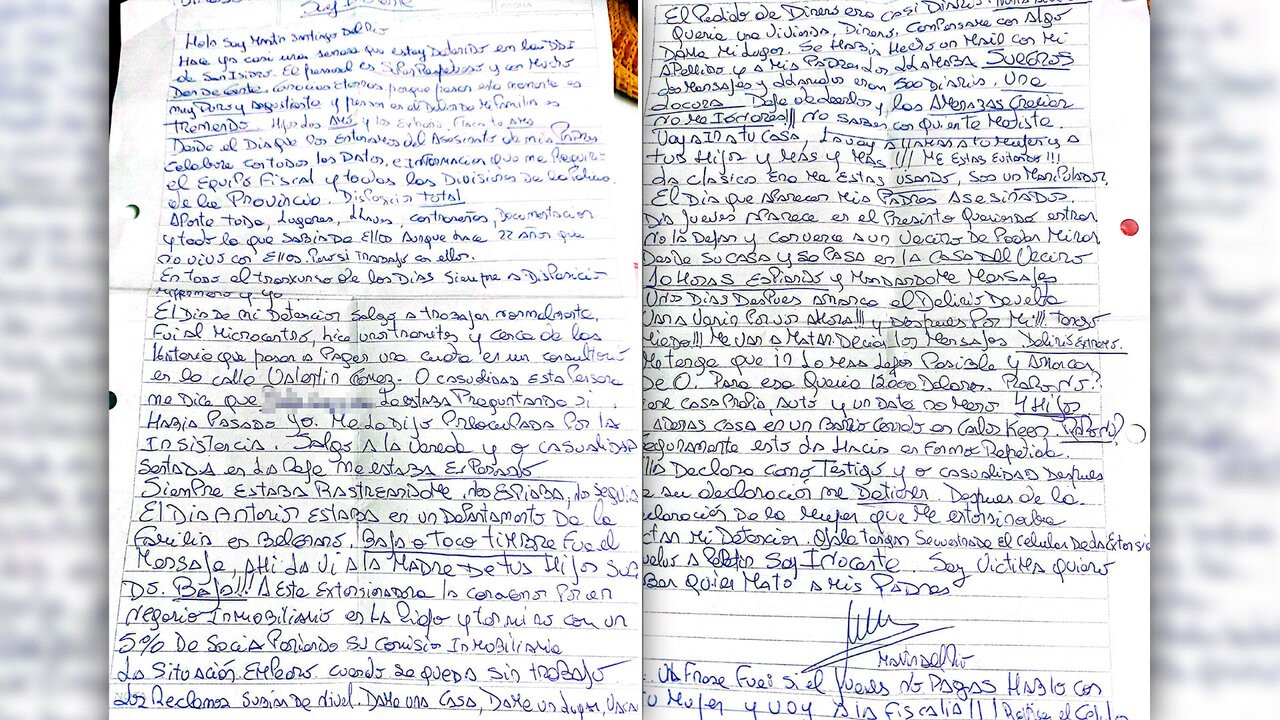 Soy Inocente
Hola Soy Martin Santiago Del Rio
Hace ya casi una semana que estoy Detenido en la DDI
de San Isidro. El personal es Super Respetuoso y con Mucho
Don de Gente. Gracias eternas porque pasar este momento es
muy Duro y Angustiante y pensar en el Dolor de Mi Familia es
Tremendo. Hijos los Amo y los Extraño.
Desde el Dia que Nos Enteramos del Asesinato de mis Padres
Colabore con todos los Datos, e Informacion que me Requirio
el Equipo Fiscal y todas las Divisiones de la Policia
de la Provincia. Disposicion total
Aporte todo, lugares, llaves, contraseñas, Documentacion
y todo lo que Sabia de Ellos Aunque hace 22 Años que
no vivo con Ellos. Pero si Trabajo con ellos.
En todo el transcurso de los Dias Siempre a Disposicion
mi hermano y yo
El Dia de mi Detencion Salgo a trabajar normalmente,
Fui al Microcentro, hice unos tramites y cerca de las
Historia que pasan a Pagar una cuota es un consultorio
en la calle Valentin Gomez. O casualidad esta Persona
me Dice que La estaba Preguntando si
Habia Pasado yo. Me lo dijo Preocupada Por la
Insistencia. Salgo a la Vereda y o casualidad
Sentada en la Reja me estaba Esperando
Siempre Estaba Rastreandome, nos Espiaba, nos seguia
El Dia Anterior Estaba en un Departamento De la
Familia en Belgrano. Bajo o Toco timbre Fue el
Mensaje, Ahi la Vi a la Madre De tus Hijos
Ds. Bajo!!! A Esta Extorsionadora la conozco Por un
negocio Inmobiliario en La Rioja y termino con un
5% De Socia Poniendo su comision Inmobiliaria
La Situacion Empeoro cuando se queda sin trabajo
Los Reclamos Subian de nivel. Dame una Casa, Dame un lugar,
El Pedido de Dinero era casi Diario.
Queria una Vivienda, Dinero, Compensame con Algo
Dame Mi lugar. Se Habia Hecho un Mail con Mi
Apellido y a Mis Padres los llamaba SUEGROS
Los Mensajes y llamados eran 500 Diarios. Una
Locura. Deje de leerlos y las Amenazas Crecian
No Me Ignores!!! No Sabes con quien te Metiste
Voy a Ir a tu Casa, La voy a llamar a tu Mujer y a
tus Hijos y Mas y Mas !!! Me Estas Evitando!!!
La Clasica Era Me Estas usando, Sos un Manipulador.
El Dia que Aparecen Mis Padres Asesinados.
Dia Jueves Aparece en el Presinto Queriendo entrar
No la Dejan y Convence a un Vecino De Poder Mirar
Desde su casa y se Pasa en la Casa del Vecino
10 Horas Espiando y Mandandome Mensajes
Unos Dias Despues Arranca el Delirio De ella
Van a Venir Por vos Ahora!!! y Despues Por Mi!!! Tengo
Miedo!!! Me Van a Matar. Decia los Mensajes Delirio Extremo.
Me tengo que ir lo mas lejos Posible y Arrancar
De 0. Para eso Queria 12000 Dolares. Raro No?
Tiene Casa Propia, Auto y un Dato no Menor 4 Hijos
Ademas Casa en un Barrio Cerrado en Carlos Keen. Raro No?
Seguramente esto lo Hacia en Forma Repetida.
Ella Declara como Testigo y o casualidad Despues
de su declaración me Detienen. Despues de la
Declaración De la Mujer que Me extorsionaba
Dictan Mi Detencion. Ojala tengan Secuestrado el Celular De la Extorsio
Vuelvo a Repetir Soy Inocente. Soy Victima quiero
Saber Quien Mato a Mis Padres
Martin Del Rio
Una Frase Fue: Si el Jueves no Pagas Hablo con
tu Mujer y voy a la Fiscalia!!!